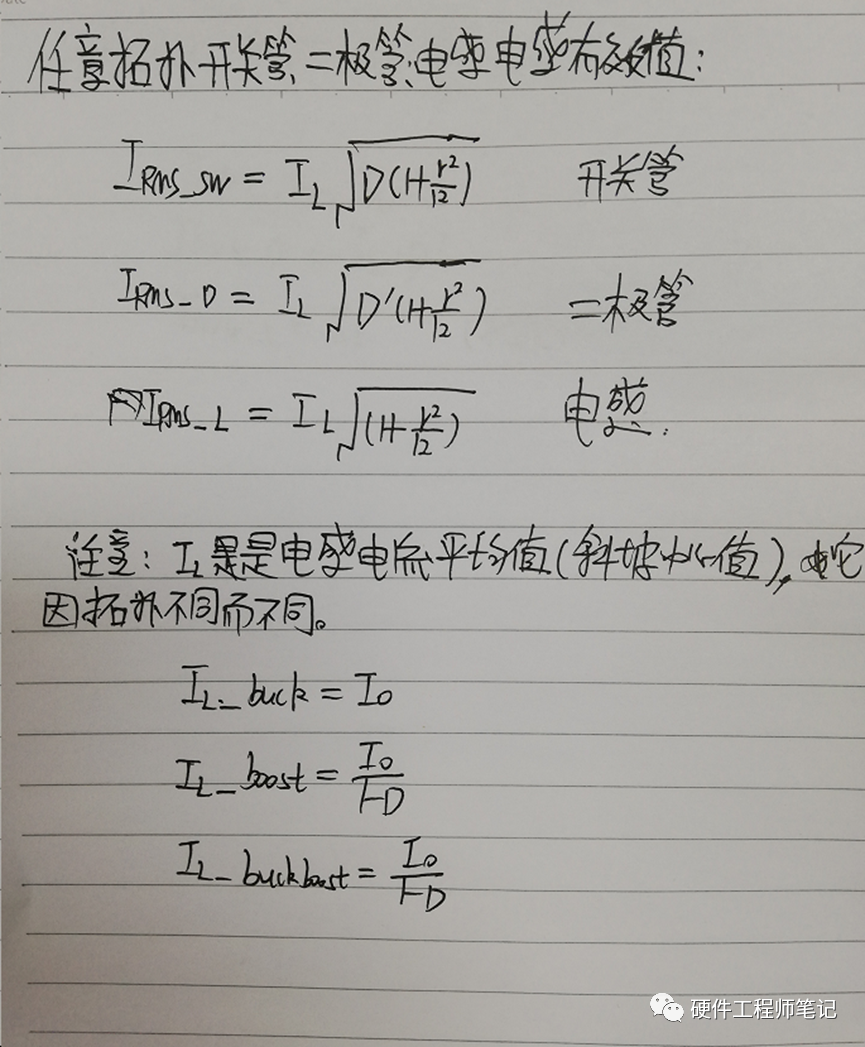 任意拓扑开关管、二极管、电感电感有效值:
I_RMS_SW = I_L √(D(1+r²/12)) 开关管
I_RMS_D = I_L √(D'(1+r²/12)) 二极管
I_RMS_L = I_L √((1+r²/12)) 电感.
注意: I_L是是电感电流平均值(斜坡中心值), 它
因拓扑不同而不同。
I_L_buck = I_O
I_L_boost = I_O/(1-D)
I_L_buckboost = I_O/(1-D)
硬件工程师笔记